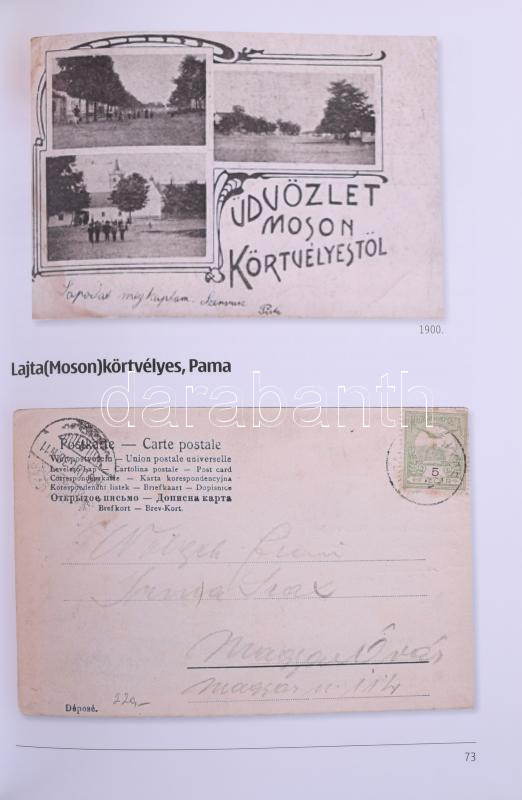 ÜDVÖZLET
MOSON
KÖRTVÉLYESTŐL
Lapodat megkaptam. Szervusz
1900.
Lajta(Moson)körtvélyes, Pama
darabanth
Postkarte — Carte postale
Weltpostverein — Union postale universelle
Levelező-Lap — Cartolina postale — Post card
Correspondenzkarte — Karta korespondencyjna
Korespondenční lístek — Briefkaart — Dopisnice
Открытое письмо — Дописна карта
Brefkort — Brev-Kort.
5
Magyar Óvár
Magyar u.
Déposé.
220,-
73